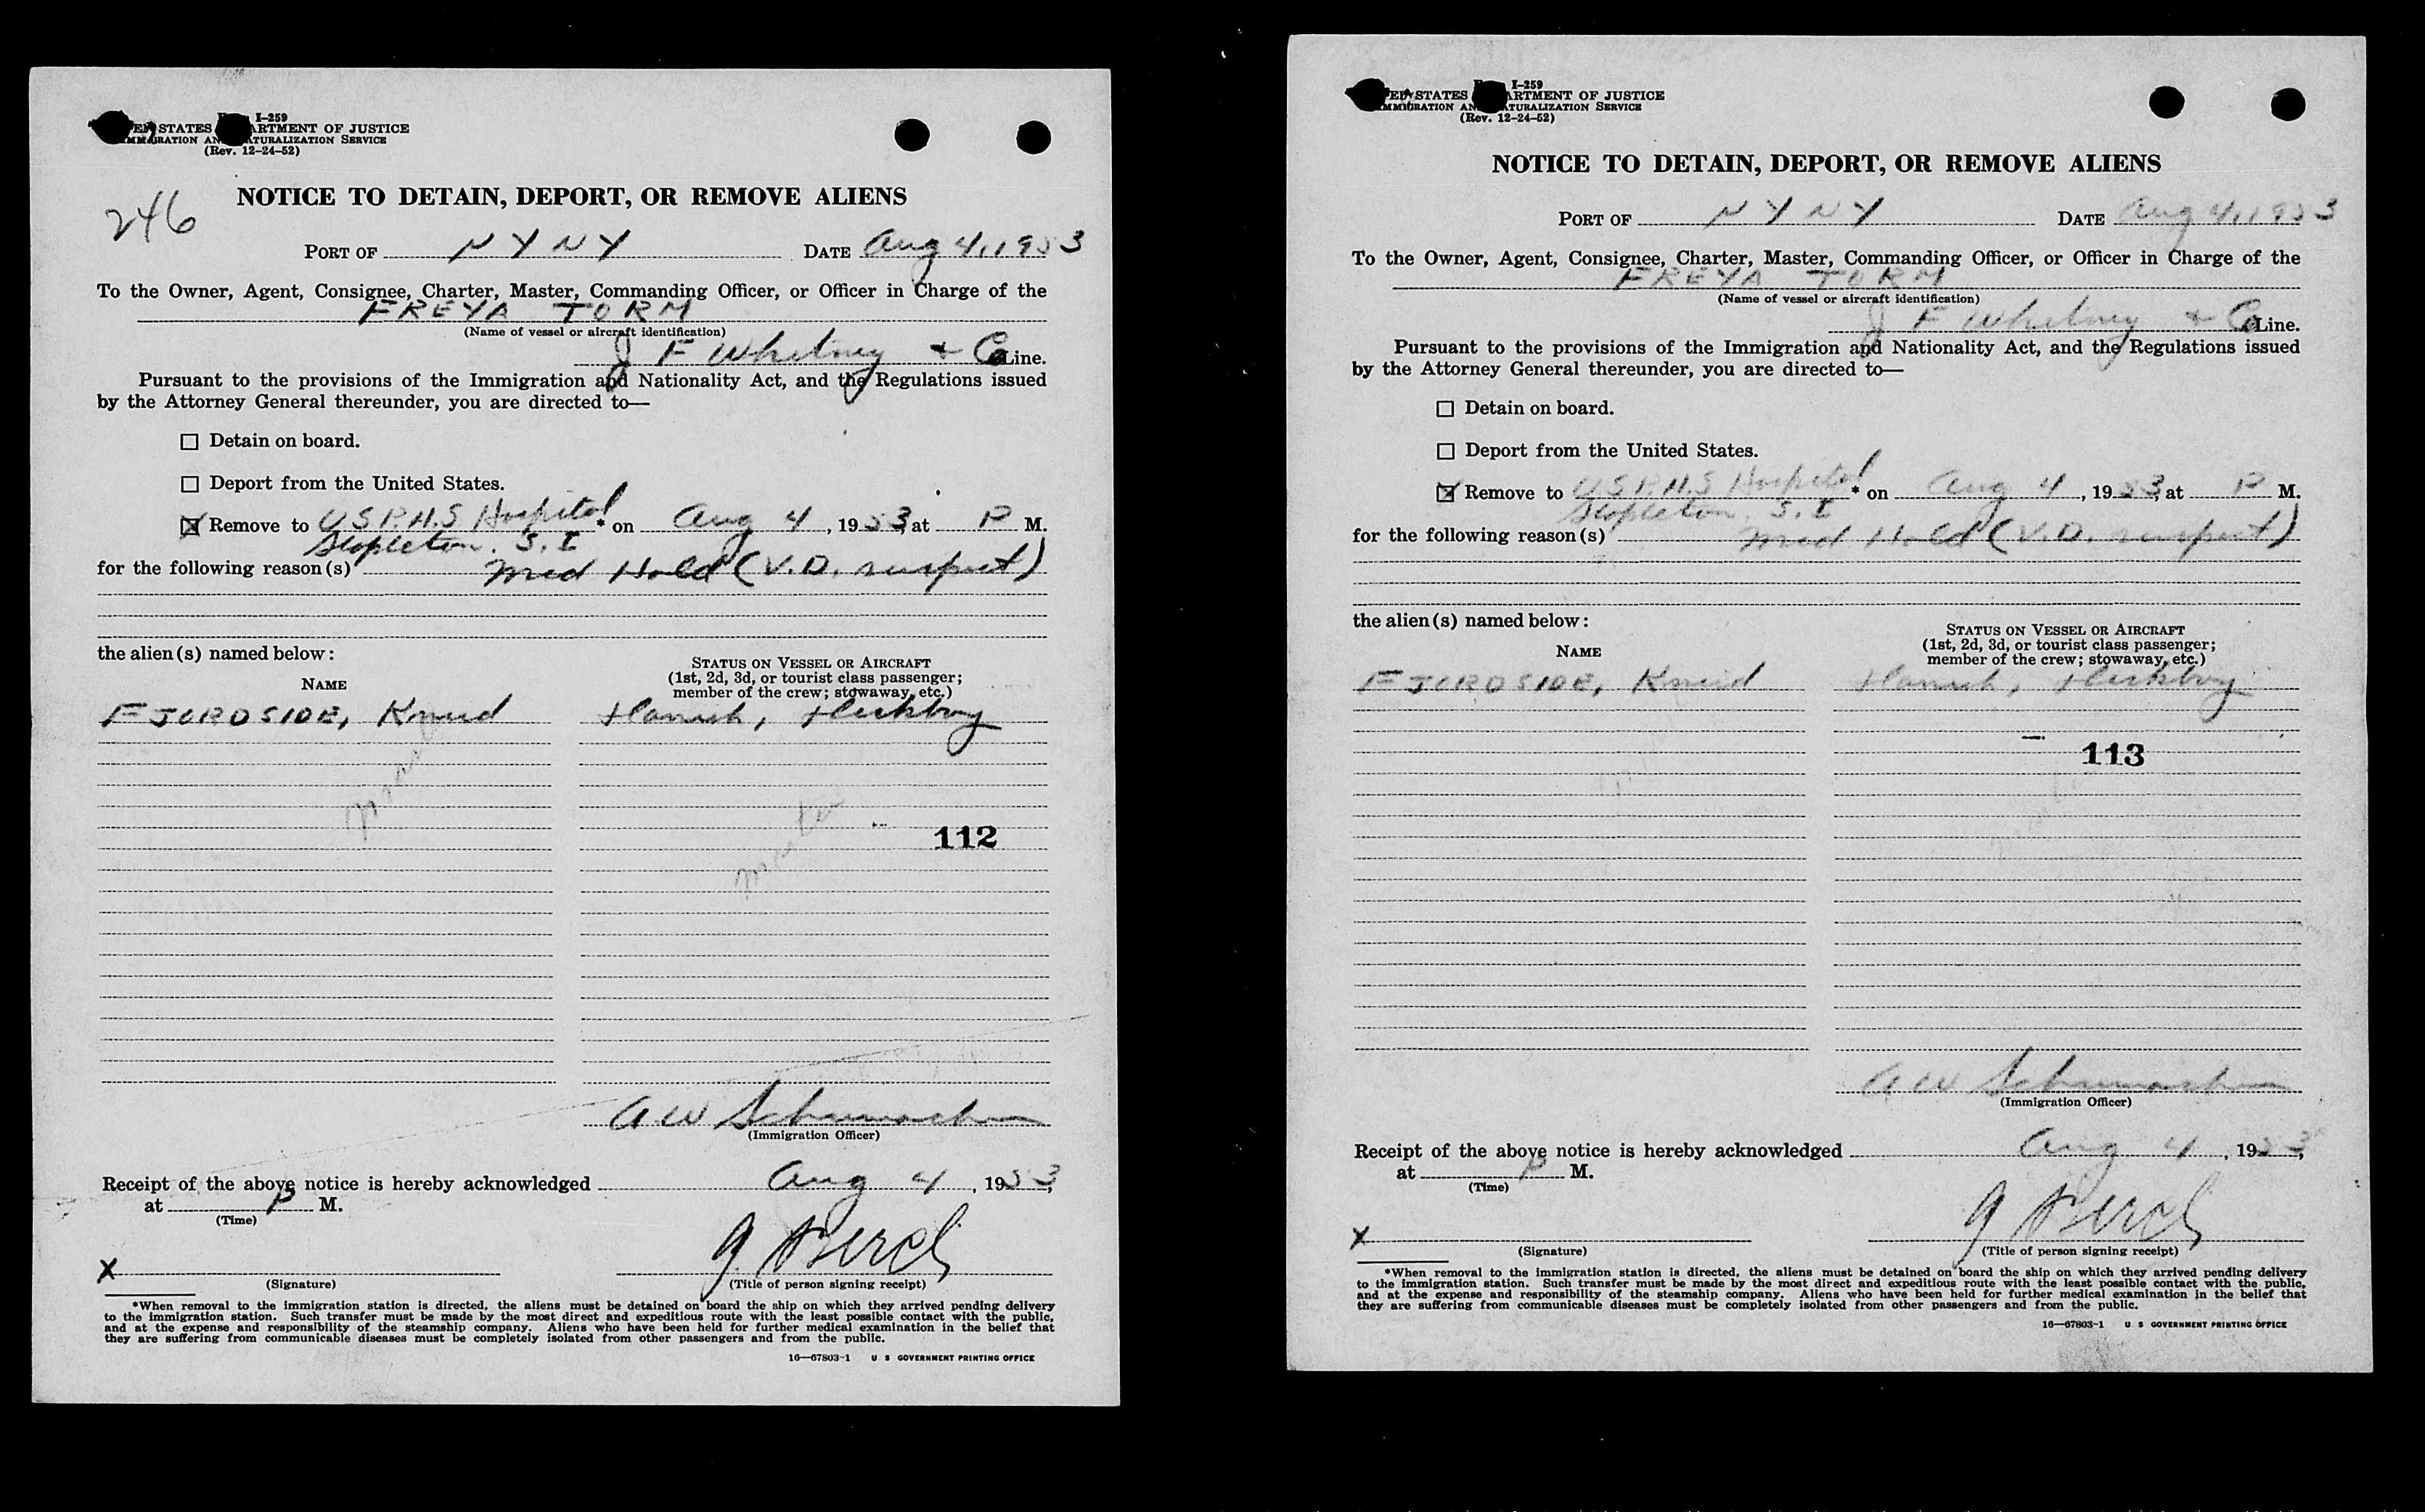 I-259
STATES ARTMENT OF JUSTICE
IMMIGRATION AN ATURALIZATION SERVICE
(Rev. 12-24-52)
246
NOTICE TO DETAIN, DEPORT, OR REMOVE ALIENS
PORT OF N Y N Y DATE Aug 4, 1953
To the Owner, Agent, Consignee, Charter, Master, Commanding Officer, or Officer in Charge of the
FREYA TORM
(Name of vessel or aircraft identification)
J F Whitney + Co Line.
Pursuant to the provisions of the Immigration and Nationality Act, and the Regulations issued
by the Attorney General thereunder, you are directed to—
☐ Detain on board.
☐ Deport from the United States.
☒ Remove to U.S.P.H.S Hospital * on Aug 4, 1953, at P M.
Stapleton. S.I
for the following reason(s) Med Hold (V.D. suspect)
the alien(s) named below:
NAME
STATUS ON VESSEL OR AIRCRAFT
(1st, 2d, 3d, or tourist class passenger;
member of the crew; stowaway, etc.)
FJORDSIDE, Knud
112
A.W Schumacher
(Immigration Officer)
Receipt of the above notice is hereby acknowledged Aug 4, 1953,
at P M.
(Time)
X
(Signature)
(Title of person signing receipt)
*When removal to the immigration station is directed, the aliens must be detained on board the ship on which they arrived pending delivery
to the immigration station. Such transfer must be made by the most direct and expeditious route with the least possible contact with the public,
and at the expense and responsibility of the steamship company. Aliens who have been held for further medical examination in the belief that
they are suffering from communicable diseases must be completely isolated from other passengers and from the public.
16—67803-1 U S GOVERNMENT PRINTING OFFICE
I-259
STATES ARTMENT OF JUSTICE
IMMIGRATION AN ATURALIZATION SERVICE
(Rev. 12-24-52)
NOTICE TO DETAIN, DEPORT, OR REMOVE ALIENS
PORT OF N Y N Y DATE Aug 4, 1953
To the Owner, Agent, Consignee, Charter, Master, Commanding Officer, or Officer in Charge of the
FREYA TORM
(Name of vessel or aircraft identification)
J F Whitney + Co Line.
Pursuant to the provisions of the Immigration and Nationality Act, and the Regulations issued
by the Attorney General thereunder, you are directed to—
☐ Detain on board.
☐ Deport from the United States.
☒ Remove to U.S.P.H.S Hospital * on Aug 4, 1953, at P M.
Stapleton. S.I
for the following reason(s) Med Hold (V.D. suspect)
the alien(s) named below:
NAME
STATUS ON VESSEL OR AIRCRAFT
(1st, 2d, 3d, or tourist class passenger;
member of the crew; stowaway, etc.)
FJORDSIDE, Knud
113
A W Schumacher
(Immigration Officer)
Receipt of the above notice is hereby acknowledged Aug 4, 1953,
at P M.
(Time)
X
(Signature)
(Title of person signing receipt)
*When removal to the immigration station is directed, the aliens must be detained on board the ship on which they arrived pending delivery
to the immigration station. Such transfer must be made by the most direct and expeditious route with the least possible contact with the public,
and at the expense and responsibility of the steamship company. Aliens who have been held for further medical examination in the belief that
they are suffering from communicable diseases must be completely isolated from other passengers and from the public.
16—67803-1 U S GOVERNMENT PRINTING OFFICE